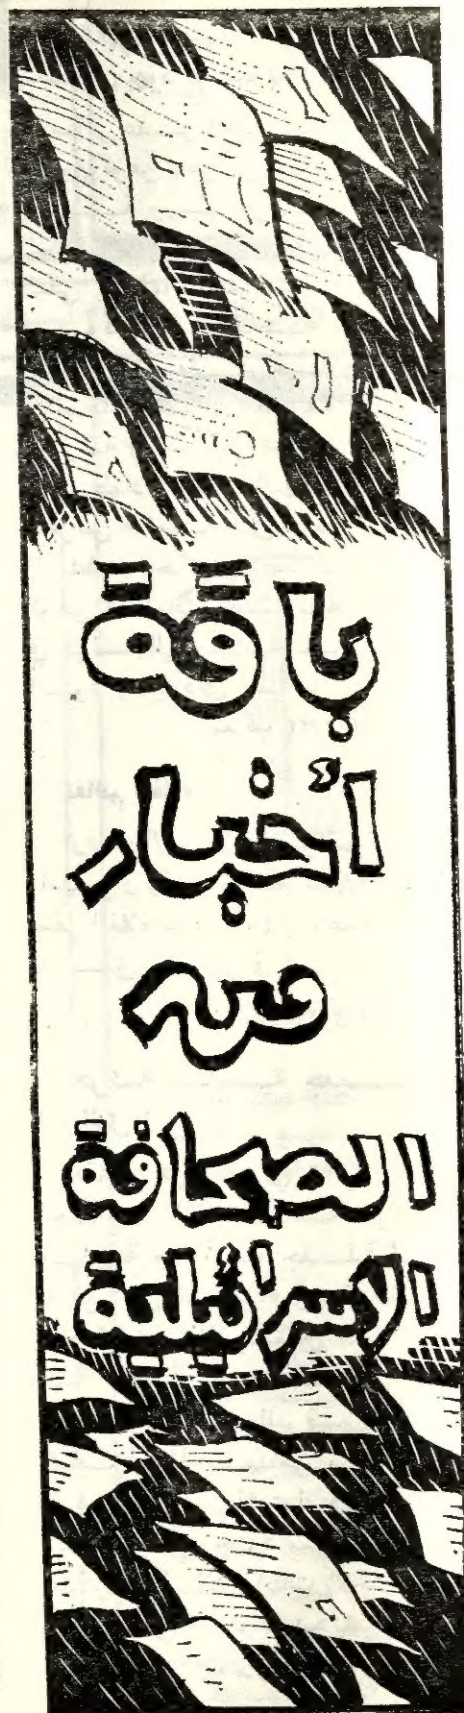 باقة
أخبار
من
الصحافة
الاسرائيلية